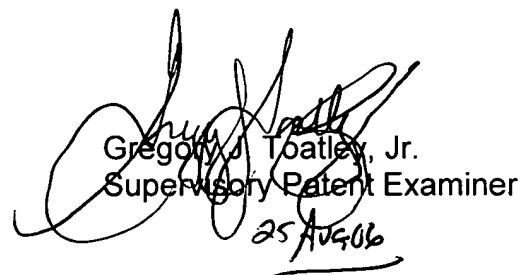 Gregory J. Toatley, Jr.
Supervisory Patent Examiner
25 AUG 06